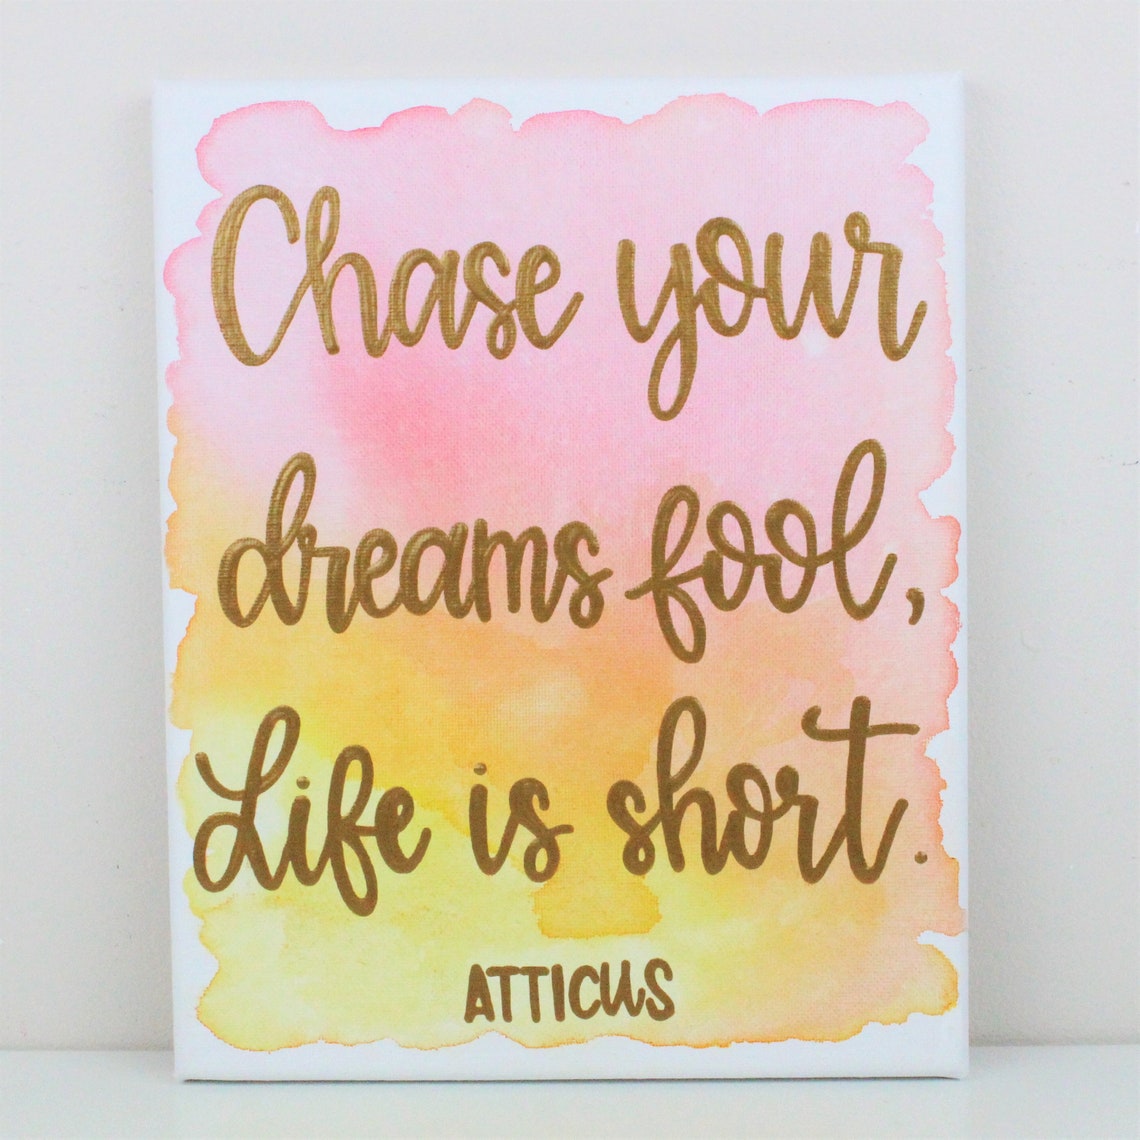 Chase your
dreams fool,
Life is short.
ATTICUS